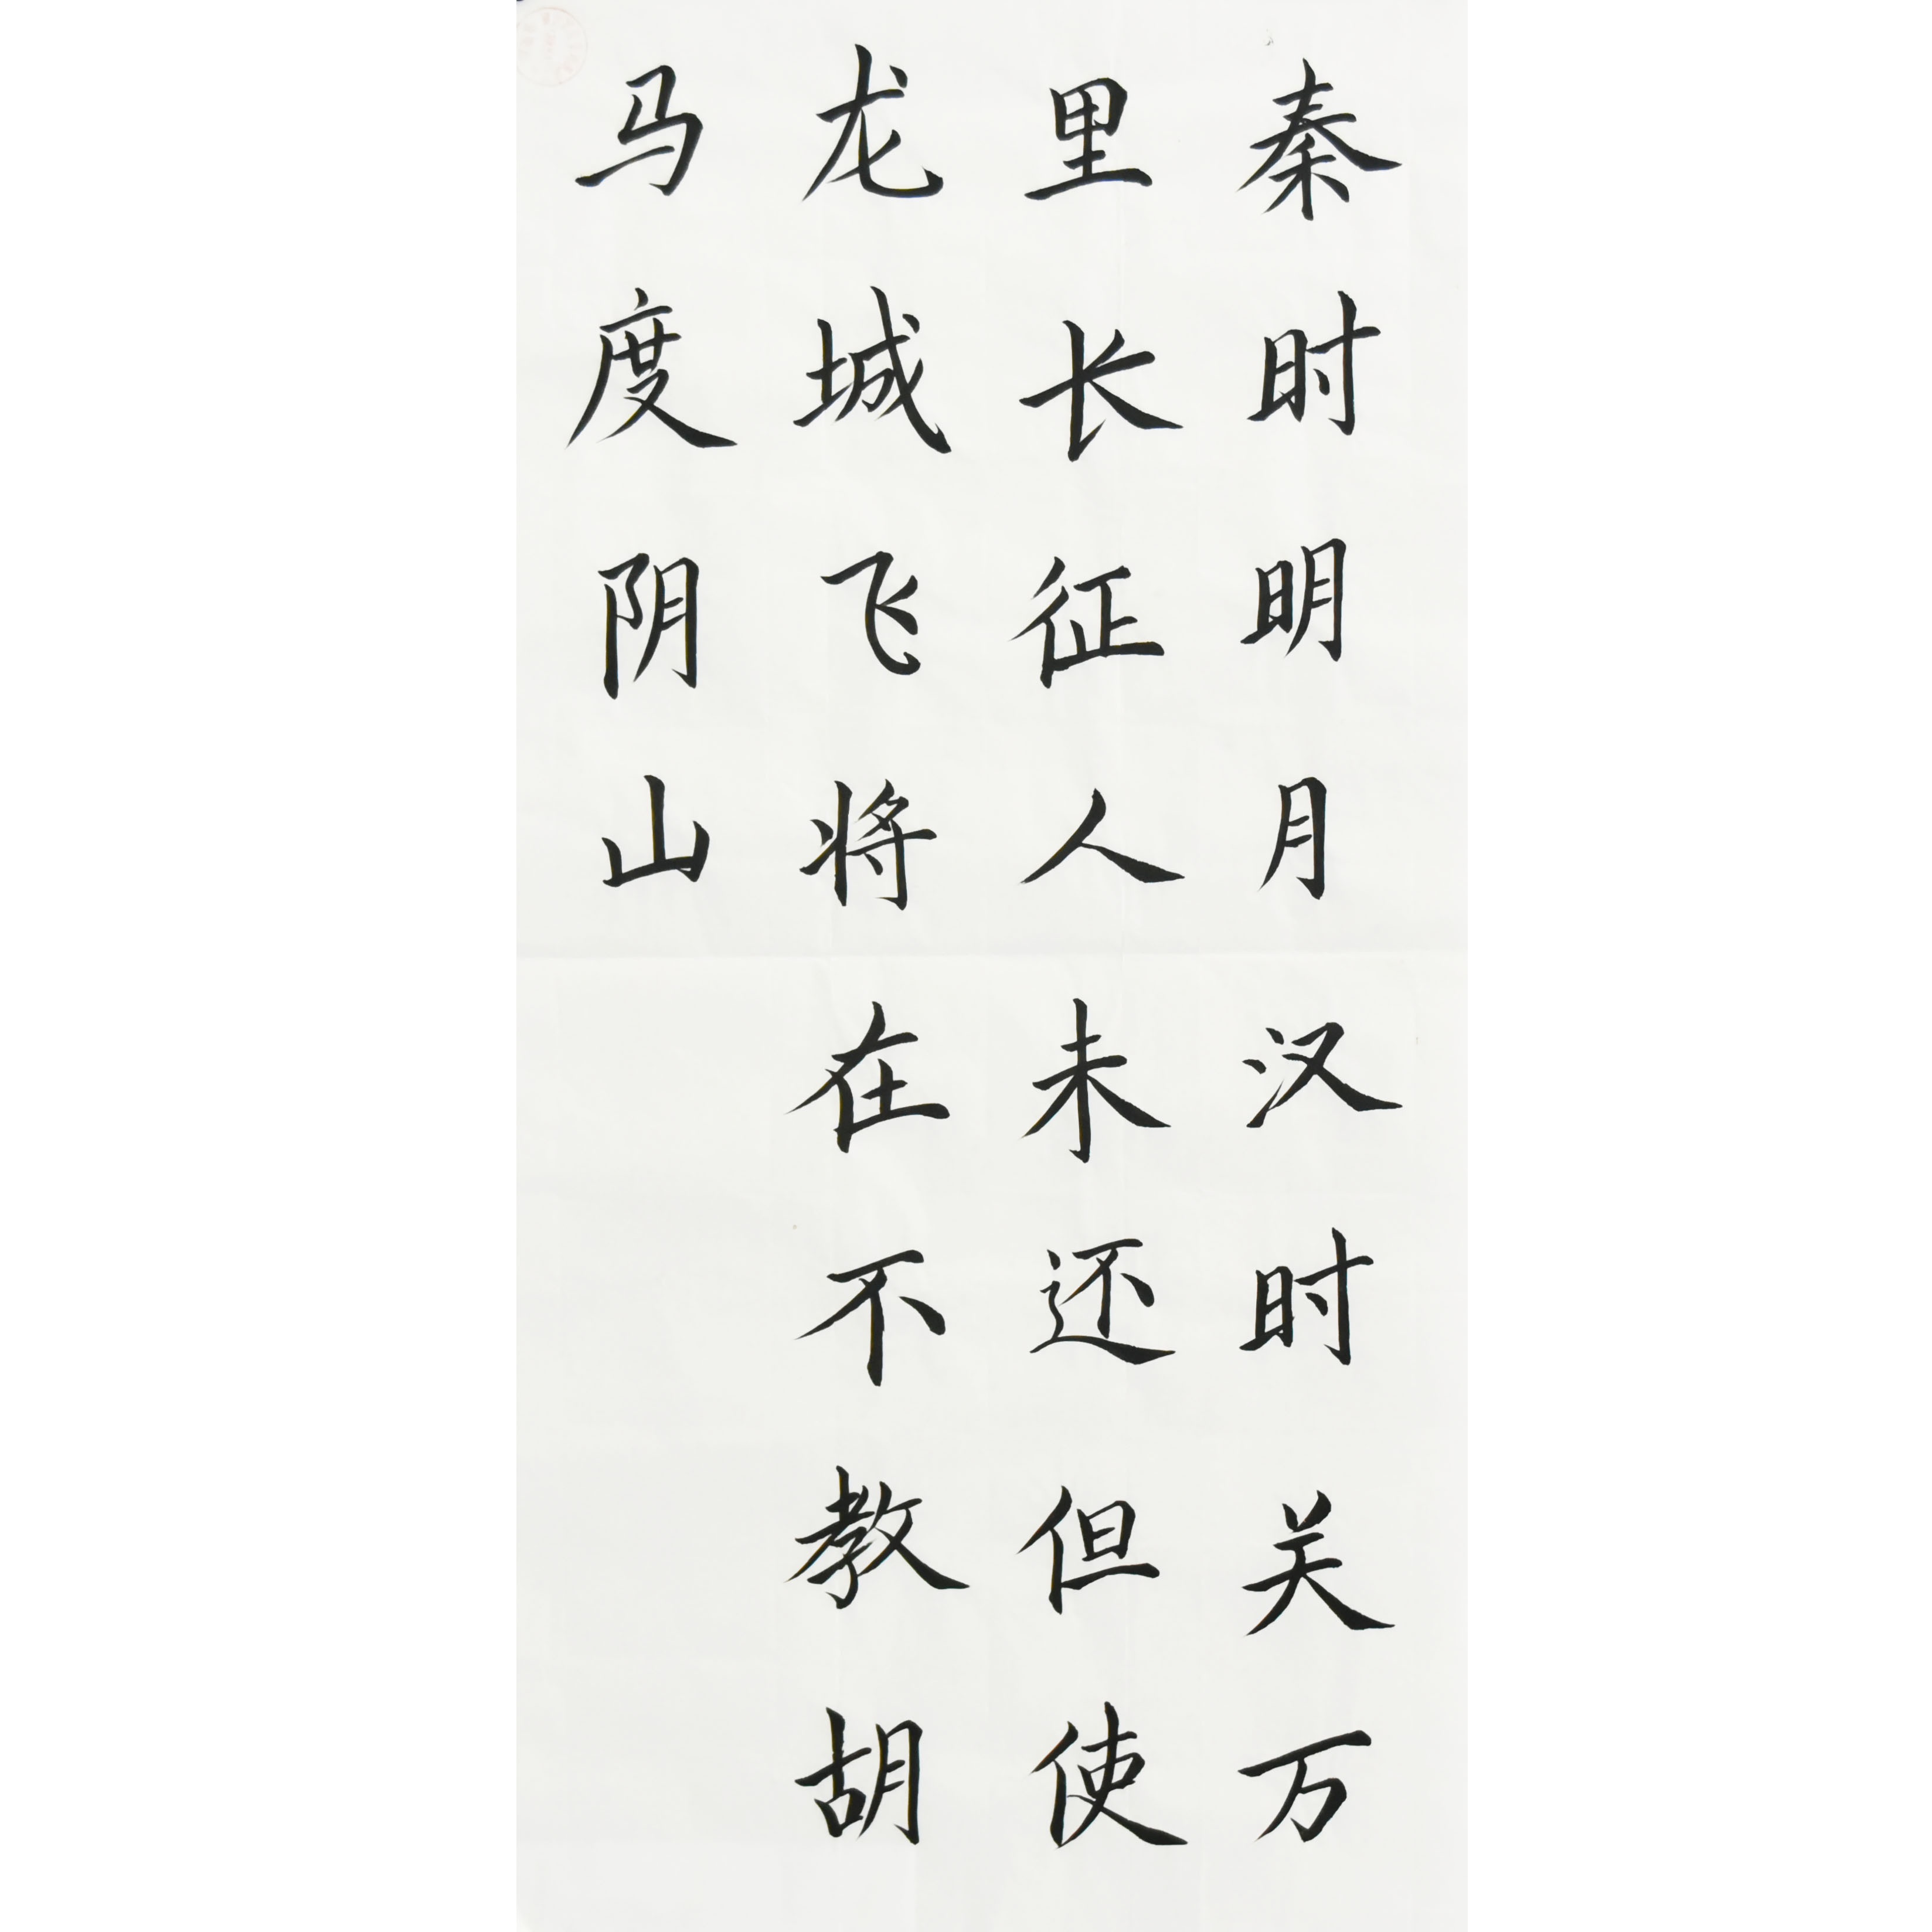 秦时明月汉时关万
里长征人未还但使
龙城飞将在不教胡
马度阴山